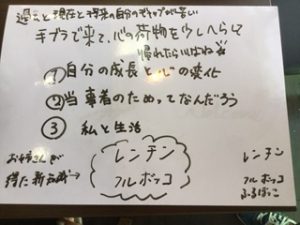 過去と現在と将来の自分のギャップが苦しい
手ブラで来て、心の荷物を少しへらして
帰れたらいいね
①自分の成長と心の変化
②当事者のためってなんだろう
③ 私と生活
お姉さんが
得た新知識→
レンチン
フルボッコ
レンチン
フルボッコ
ふるぼっこ